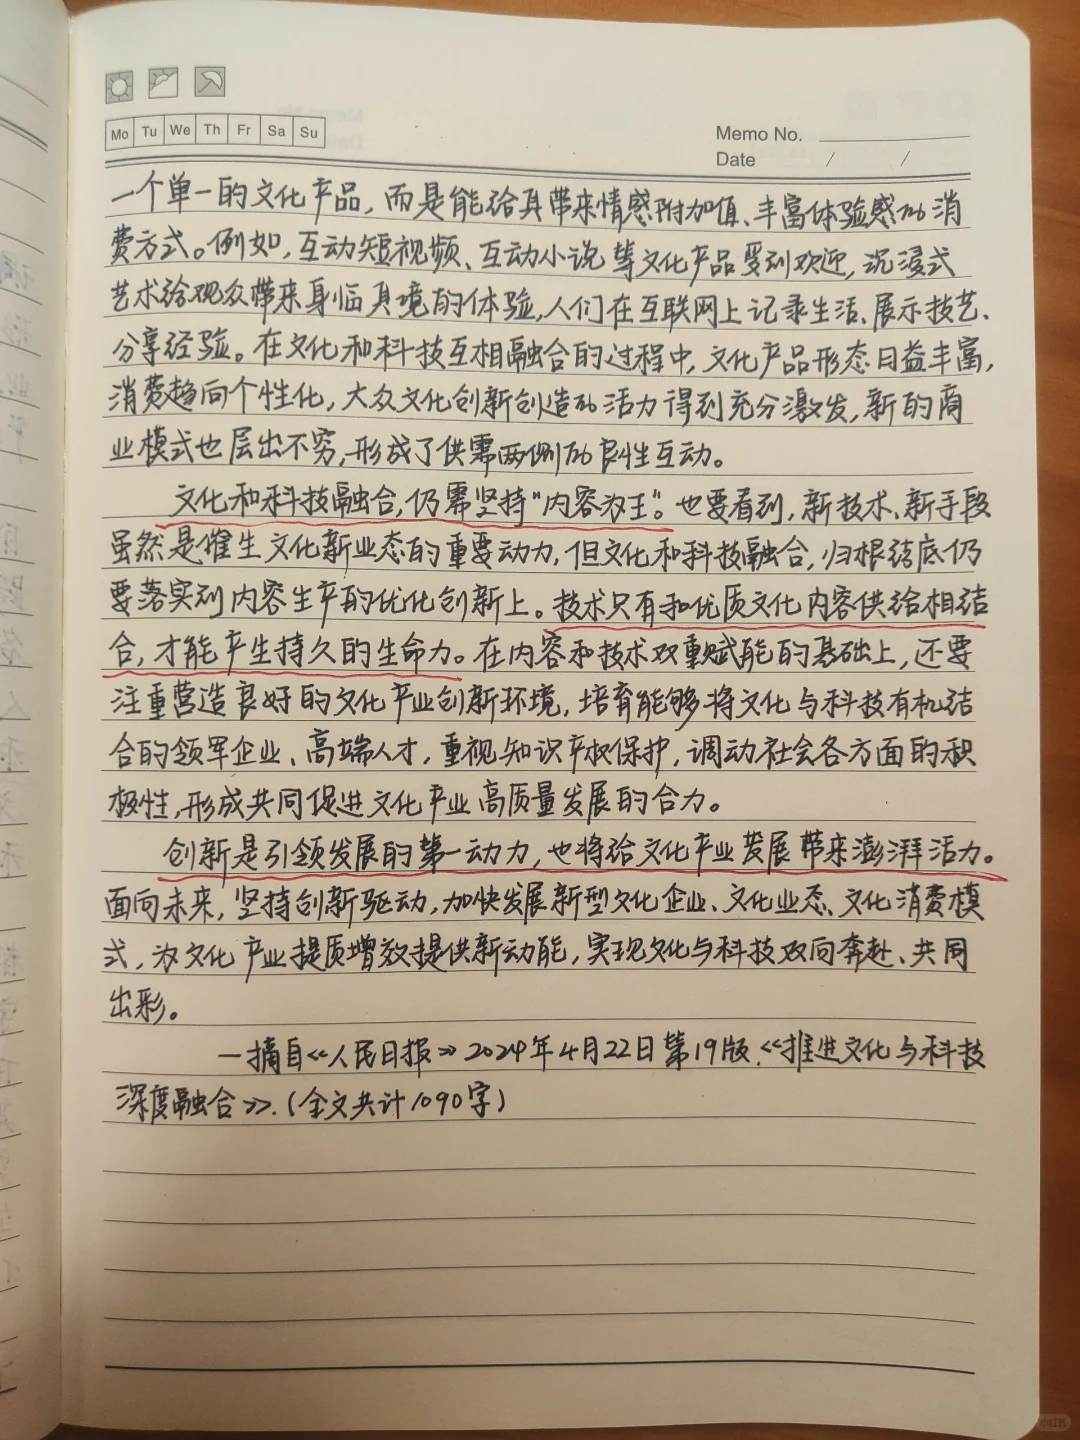 Mo Tu We Th Fr Sa Su
Memo No.
Date / /
一个单一的文化产品，而是能给其带来情感附加值、丰富体验感的消
费方式。例如，互动短视频、互动小说等文化产品受到欢迎，沉浸式
艺术给观众带来身临其境的体验，人们在互联网上记录生活、展示技艺、
分享经验。在文化和科技互相融合的过程中，文化产品形态日益丰富，
消费趋向个性化，大众文化创新创造的活力得到充分激发，新的商
业模式也层出不穷，形成了供需两侧的良性互动。
文化和科技融合，仍需坚持“内容为王”。也要看到，新技术、新手段
虽然是催生文化新业态的重要动力，但文化和科技融合，归根结底仍
要落实到内容生产的优化创新上。技术只有和优质文化内容供给相结
合，才能产生持久的生命力。在内容和技术双重赋能的基础上，还要
注重营造良好的文化产业创新环境，培育能够将文化与科技有机结
合的领军企业、高端人才，重视知识产权保护，调动社会各方面的积
极性，形成共同促进文化产业高质量发展的合力。
创新是引领发展的第一动力，也将给文化产业发展带来澎湃活力。
面向未来，坚持创新驱动，加快发展新型文化企业、文化业态、文化消费模
式，为文化产业提质增效提供新动能，实现文化与科技双向奔赴、共同
出彩。
—摘自《人民日报》2024年4月22日第19版.《推进文化与科技
深度融合》.(全文共计1090字)
小红书